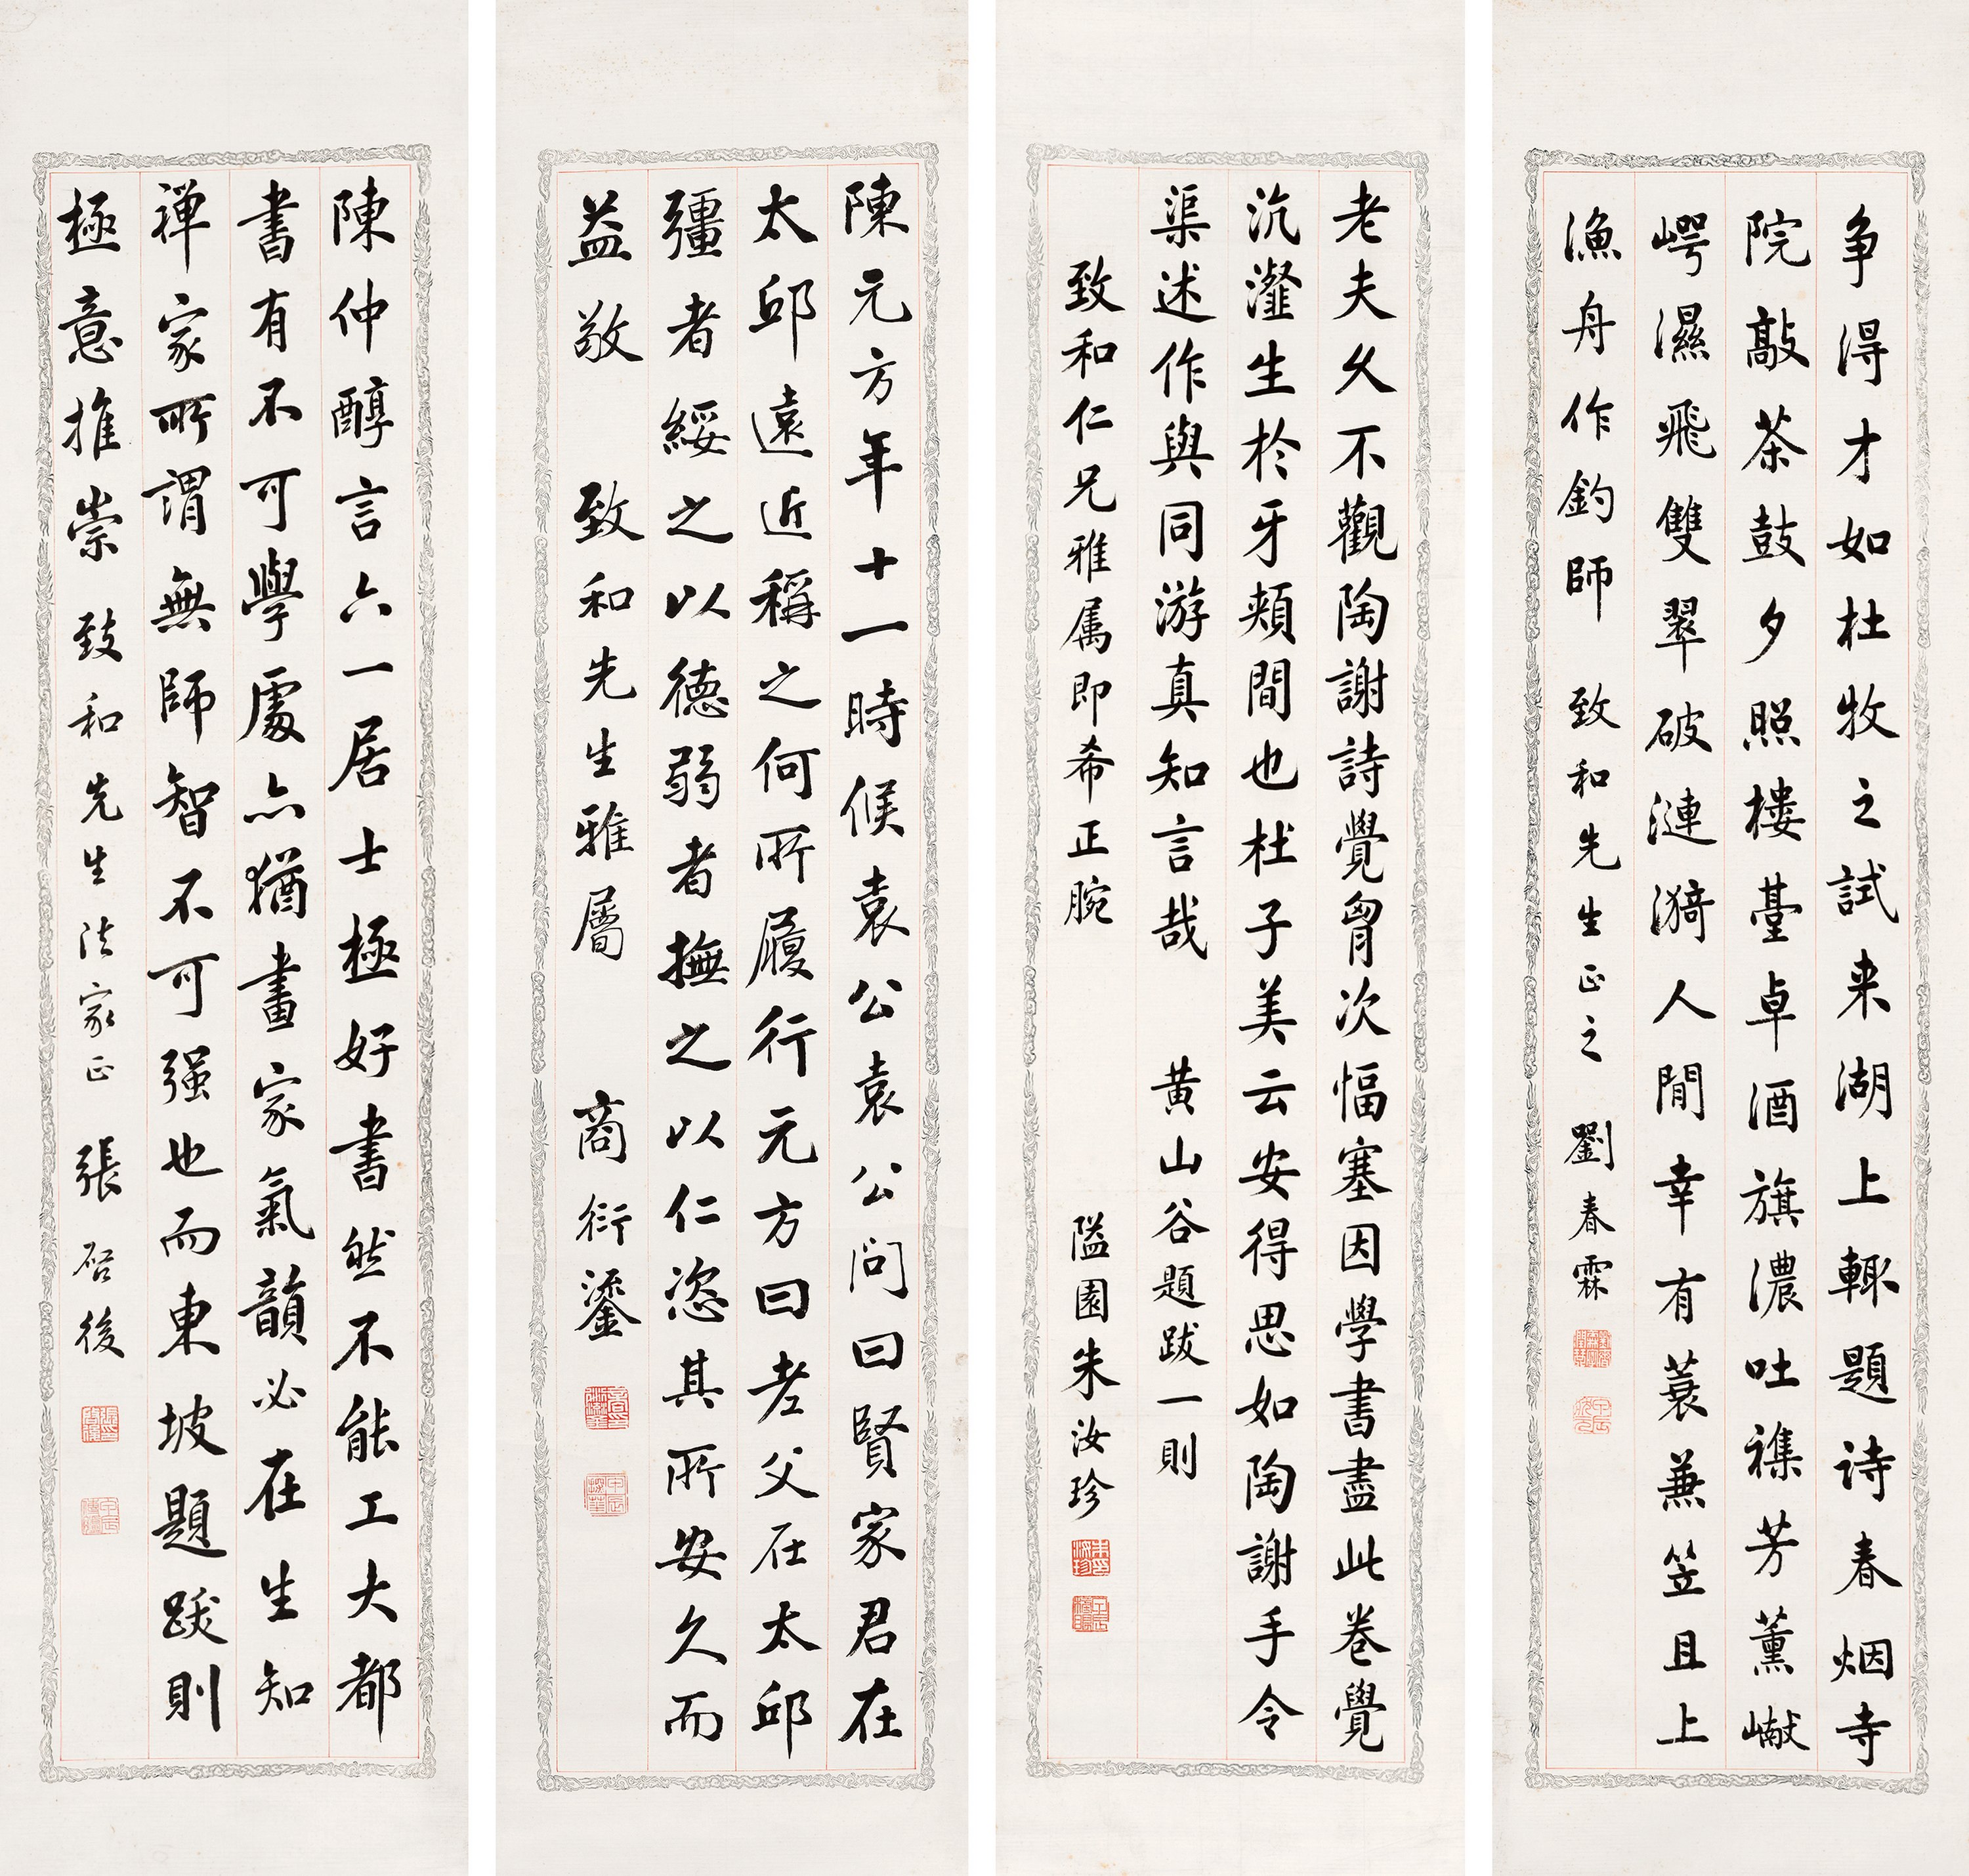 争得才如杜牧之試来湖上輙題诗春烟寺
院敲茶鼓夕照楼臺卓酒旗濃吐襍芳薰巘
崿濕飛雙翠破漣漪人間幸有蓑兼笠且上
漁舟作釣師 致和先生正之 劉春霖
老夫久不觀陶謝詩覺胷次愊塞因學書盡此卷覺
沆瀣生於牙頰間也杜子美云安得思如陶謝手令
渠述作與同游真知言哉 黄山谷題跋一則
致和仁兄雅属即希正腕 隘園朱汝珍
陳元方年十一時候袁公袁公问曰賢家君在
太邱遠近稱之何所履行元方曰老父在太邱
彊者綏之以德弱者撫之以仁恣其所安久而
益敬 致和先生雅屬 商衍瀛
陳仲醇言六一居士極好書然不能工大都
書有不可學處亦猶畫家氣韻必在生知
禅家所謂無師智不可强也而東坡題跋則
極意推崇 致和先生法家正 張啓後